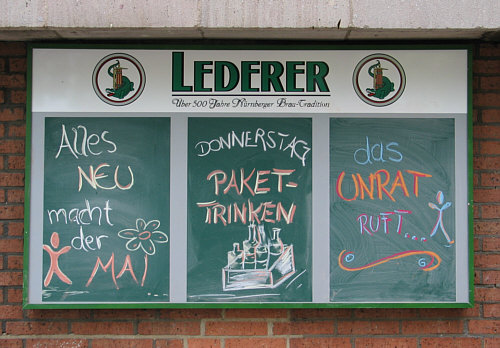 LEDERER
Über 500 Jahre Nürnberger Brau-Tradition
Alles
NEU
macht
der
MAI
DONNERSTAG
PAKET-
TRINKEN
das
UNRAT
RUFT...